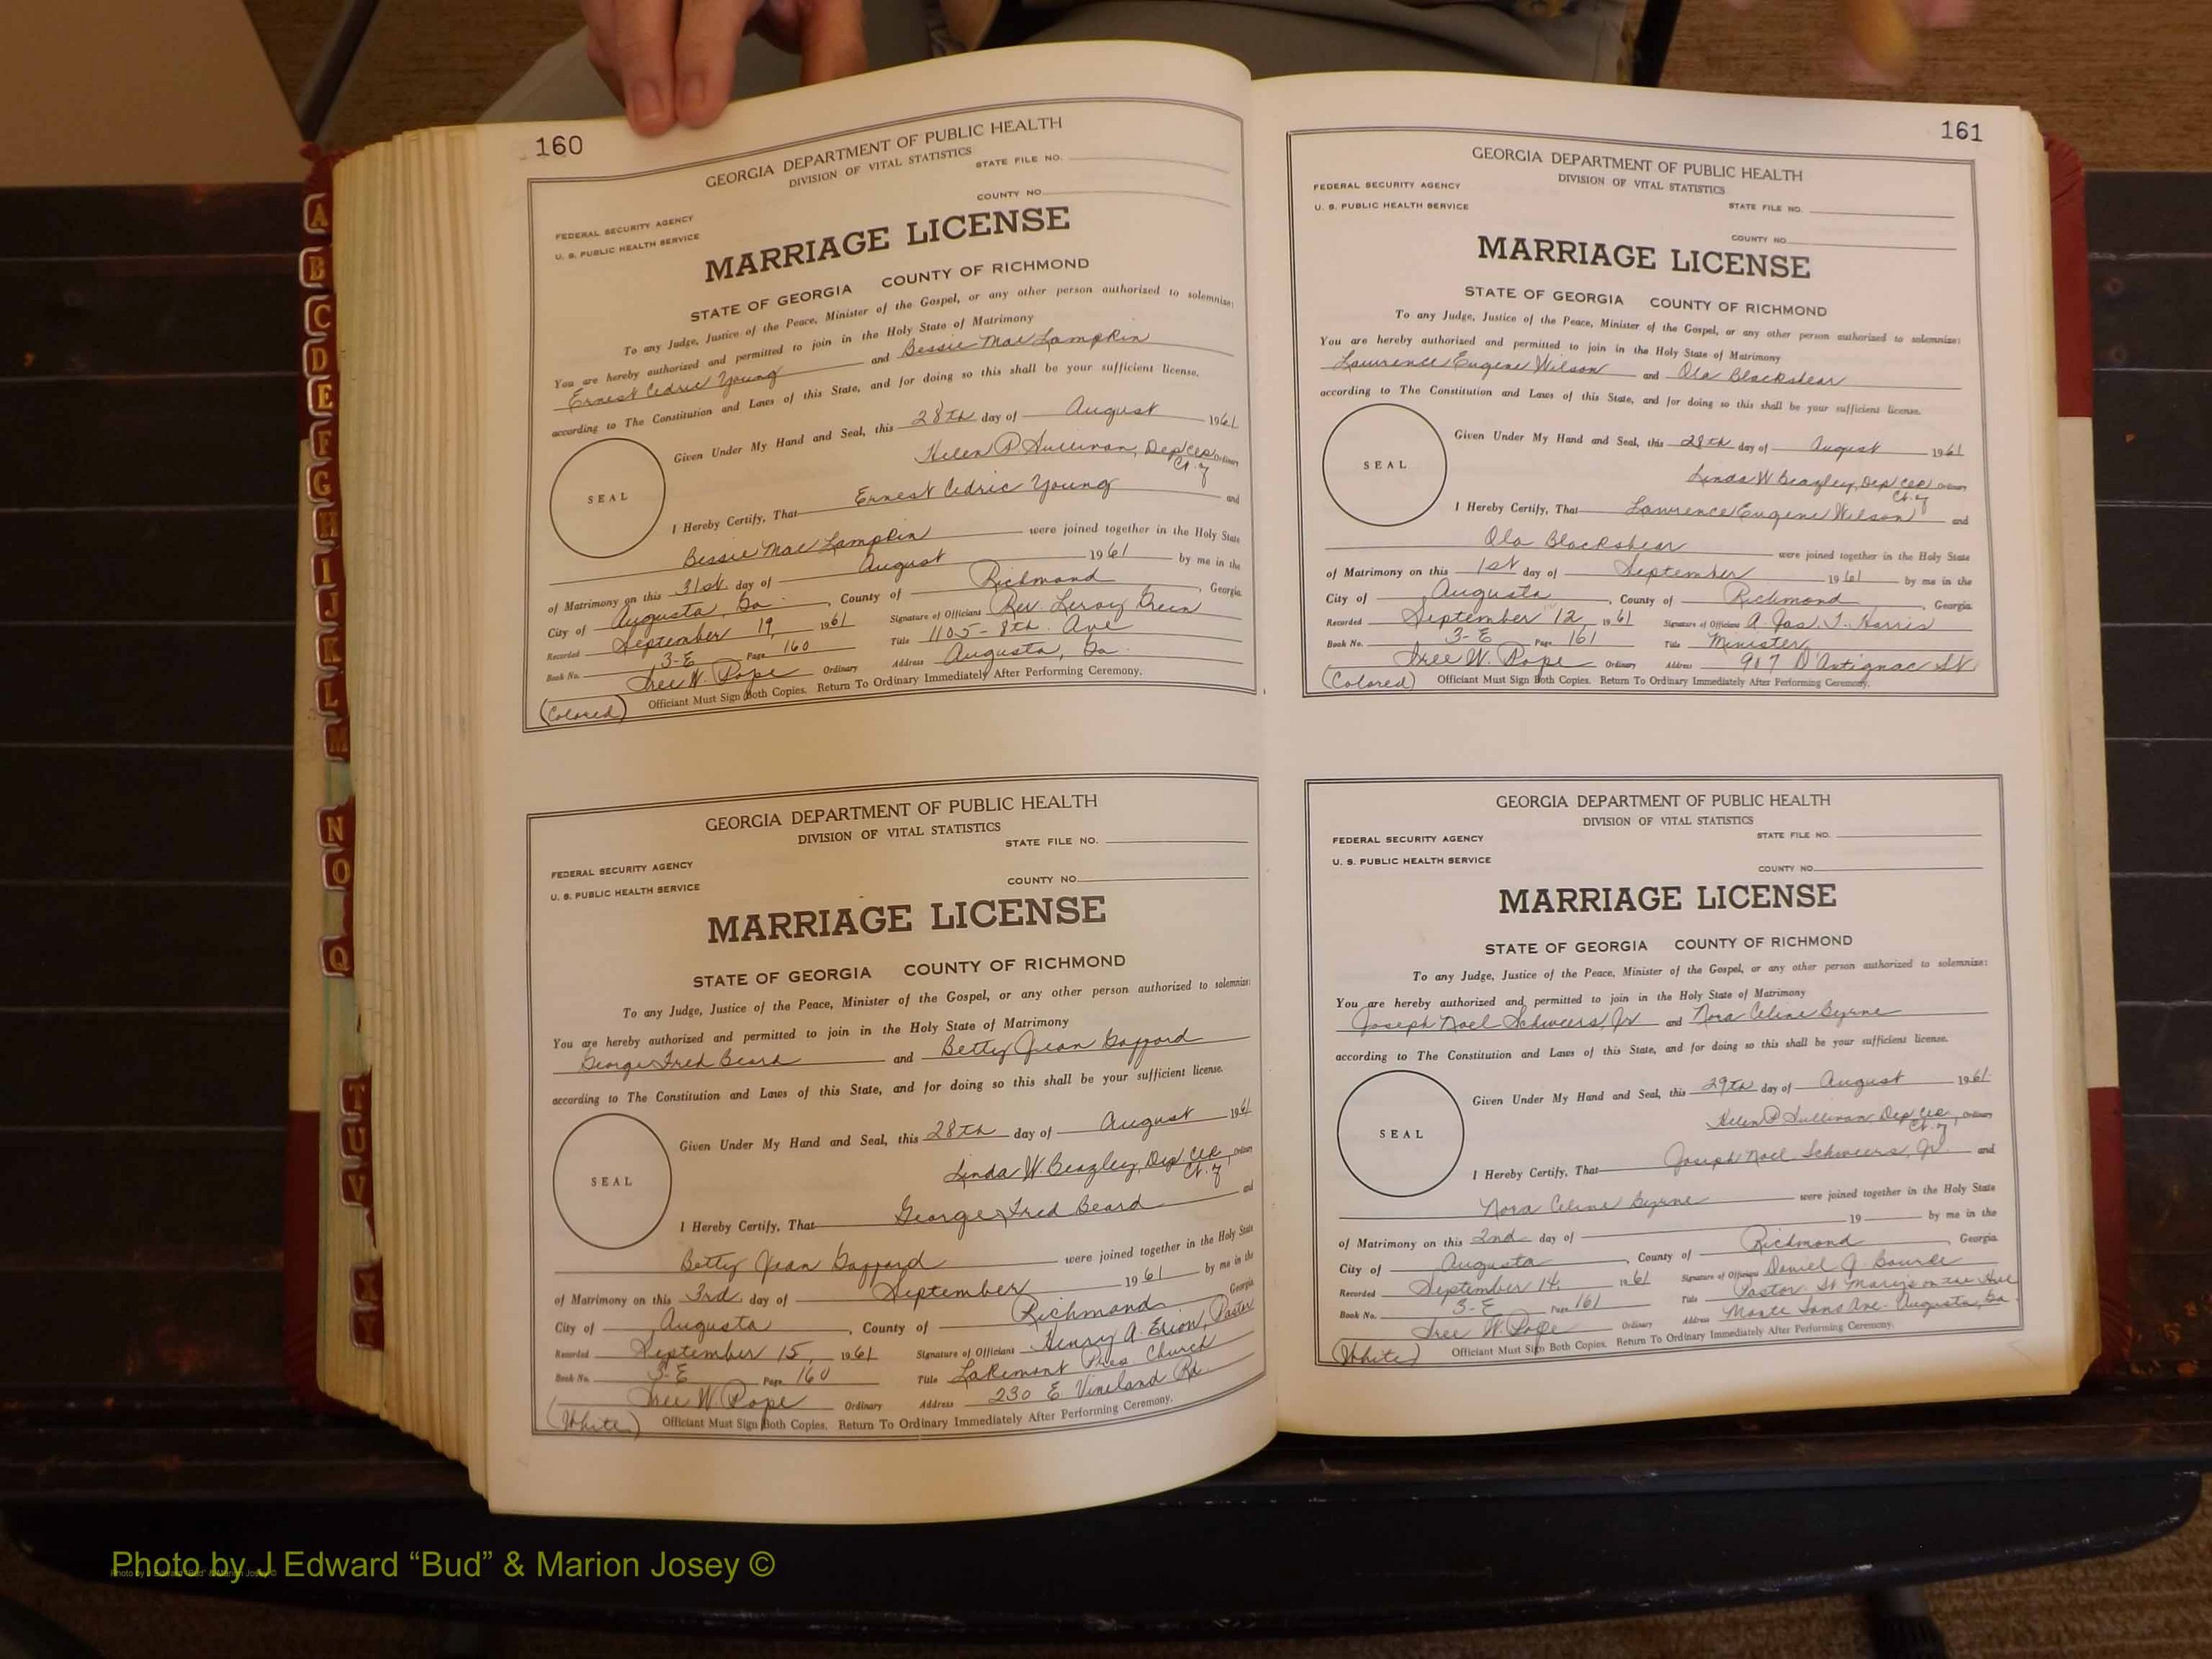 160
GEORGIA DEPARTMENT OF PUBLIC HEALTH
DIVISION OF VITAL STATISTICS
STATE FILE NO.
COUNTY NO.
FEDERAL SECURITY AGENCY
U. S. PUBLIC HEALTH SERVICE
MARRIAGE LICENSE
STATE OF GEORGIA COUNTY OF RICHMOND
To any Judge, Justice of the Peace, Minister of the Gospel, or any other person authorized to solemnize:
You are hereby authorized and permitted to join in the Holy State of Matrimony
Ernest Cedric Young and Bessie Mae Lampkin
according to The Constitution and Laws of this State, and for doing so this shall be your sufficient license.
Given Under My Hand and Seal, this 28th day of August 1961
Helen P. Sullivan, Dep Clk Ordinary
Ct. of
SEAL
I Hereby Certify, That Ernest Cedric Young and
Bessie Mae Lampkin were joined together in the Holy State
of Matrimony on this 31st day of August 1961 by me in the
City of Augusta, Ga. , County of Richmond , Georgia
Recorded September 19, 1961 Signature of Officiant Rev. Leroy Green
Book No. 3-E Page 160 Title 1105 - 8th Ave
Tree W. Pope Ordinary Address Augusta, Ga.
(Colored) Officiant Must Sign Both Copies. Return To Ordinary Immediately After Performing Ceremony.
GEORGIA DEPARTMENT OF PUBLIC HEALTH
DIVISION OF VITAL STATISTICS
STATE FILE NO.
FEDERAL SECURITY AGENCY
COUNTY NO.
U. S. PUBLIC HEALTH SERVICE
MARRIAGE LICENSE
STATE OF GEORGIA COUNTY OF RICHMOND
To any Judge, Justice of the Peace, Minister of the Gospel, or any other person authorized to solemnize:
You are hereby authorized and permitted to join in the Holy State of Matrimony
George Fred Beard and Betty Jean Gafford
according to The Constitution and Laws of this State, and for doing so this shall be your sufficient license.
Given Under My Hand and Seal, this 28th day of August 1961
Linda W. Beazley, Dep Clk Ordinary
Ct. of
SEAL
I Hereby Certify, That George Fred Beard and
Betty Jean Gafford were joined together in the Holy State
of Matrimony on this 3rd day of September 1961 by me in the
City of Augusta , County of Richmond Georgia
Recorded September 15, 1961 Signature of Officiant Henry A. Erion, Pastor
Book No. 3-E Page 160 Title Lakemont Pres. Church
Tree W. Pope Ordinary Address 230 E Vineland Rd.
(White) Officiant Must Sign Both Copies. Return To Ordinary Immediately After Performing Ceremony.
161
GEORGIA DEPARTMENT OF PUBLIC HEALTH
DIVISION OF VITAL STATISTICS
FEDERAL SECURITY AGENCY
U. S. PUBLIC HEALTH SERVICE
STATE FILE NO.
COUNTY NO.
MARRIAGE LICENSE
STATE OF GEORGIA COUNTY OF RICHMOND
To any Judge, Justice of the Peace, Minister of the Gospel, or any other person authorized to solemnize:
You are hereby authorized and permitted to join in the Holy State of Matrimony
Lawrence Eugene Wilson and Ola Blackshear
according to The Constitution and Laws of this State, and for doing so this shall be your sufficient license.
Given Under My Hand and Seal, this 28th day of August 1961
Linda W Beazley, Dep Clk Ordinary
Ct. of
SEAL
I Hereby Certify, That Lawrence Eugene Wilson and
Ola Blackshear were joined together in the Holy State
of Matrimony on this 1st day of September 1961 by me in the
City of Augusta , County of Richmond , Georgia
Recorded September 12, 1961 Signature of Officiant A. Jas. T. Harris
Book No. 3-E Page 161 Title Minister
Tree W. Pope Ordinary Address 917 D'Antignac St
(Colored) Officiant Must Sign Both Copies. Return To Ordinary Immediately After Performing Ceremony.
GEORGIA DEPARTMENT OF PUBLIC HEALTH
DIVISION OF VITAL STATISTICS
FEDERAL SECURITY AGENCY STATE FILE NO.
U. S. PUBLIC HEALTH SERVICE
COUNTY NO.
MARRIAGE LICENSE
STATE OF GEORGIA COUNTY OF RICHMOND
To any Judge, Justice of the Peace, Minister of the Gospel, or any other person authorized to solemnize:
You are hereby authorized and permitted to join in the Holy State of Matrimony
Joseph Noel Schweers, Jr and Nora Celine Byrne
according to The Constitution and Laws of this State, and for doing so this shall be your sufficient license.
Given Under My Hand and Seal, this 29th day of August 1961
Helen P Sullivan, Dep Clk, Ordinary
Ct. of
SEAL
I Hereby Certify, That Joseph Noel Schweers, Jr. and
Nora Celine Byrne were joined together in the Holy State
of Matrimony on this 2nd day of 19 by me in the
City of Augusta , County of Richmond , Georgia
Recorded September 14, 1961 Signature of Officiant Daniel J. Bourke
Book No. 3-E Page 161 Title Pastor St Mary's on the Hill
Tree W. Pope Ordinary Address Monte Sano Ave. Augusta, Ga.
(White) Officiant Must Sign Both Copies. Return To Ordinary Immediately After Performing Ceremony.
A
B
C
D
E
F
G
H
I
J
K
L
M
N
O
Q
T
U
V
X
Y
Photo by J Edward “Bud” & Marion Josey ©
Photo by J Edward “Bud” & Marion Josey ©